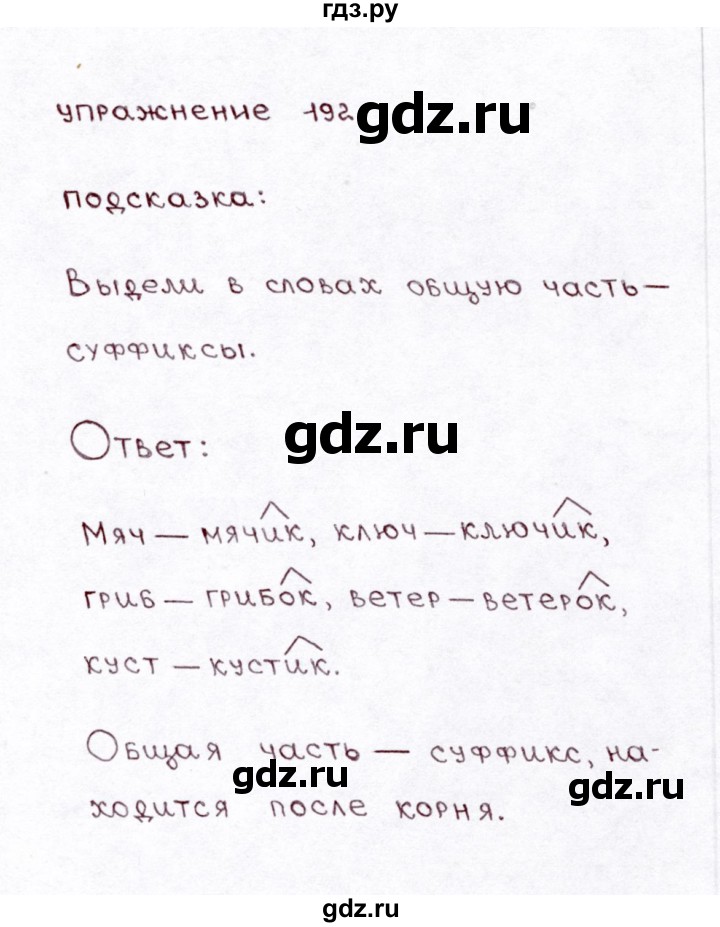 гдз.ру
упражнение 192
gdz.ru
подсказка:
Выдели в словах общую часть —
суффиксы.
Ответ:
gdz.ru
Мяч — мячик, ключ — ключик,
гриб — грибок, ветер — ветерок,
куст — кустик.
Общая часть — суффикс, на-
gdz.ru
gdz.ru
ходится после корня.
gdz.ru